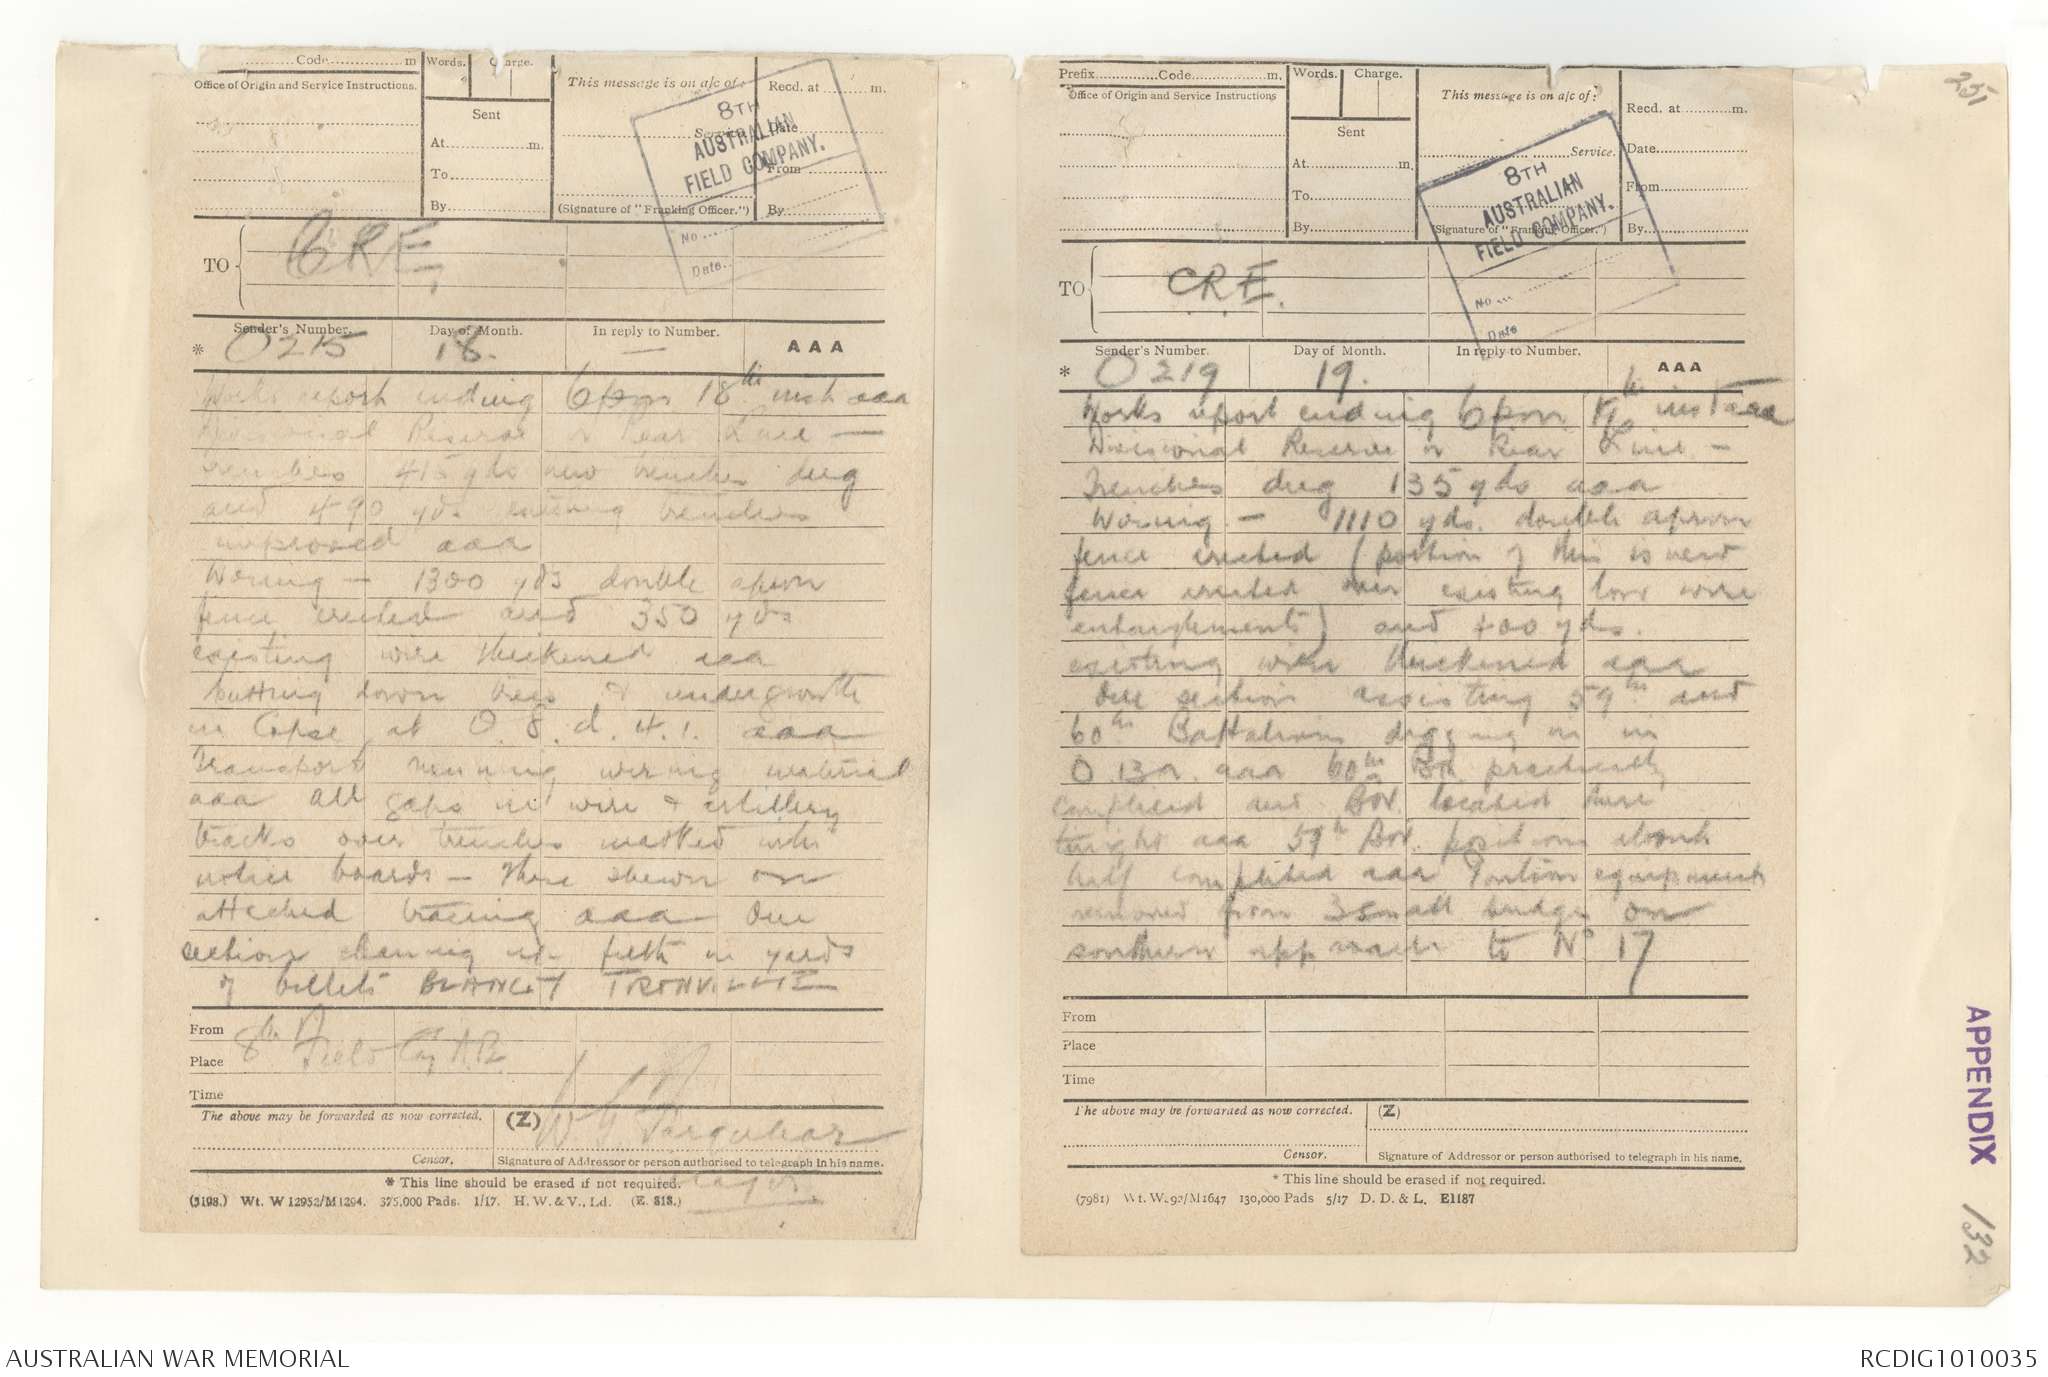 Code m
Words. Charge.
This message is on a/c of:
Recd. at m.
Office of Origin and Service Instructions.
Sent
Service
Date
At m.
To
From
By
(Signature of "Franking Officer.")
By
8TH
AUSTRALIAN
FIELD COMPANY.
No
Date
TO
CRE,
Sender's Number.
Day of Month.
In reply to Number.
AAA
* O215
18.
—
Works report ending 6pm 18th inst aaa
Divisional Reserve or Rear Line —
trenches 415 yds new trenches dug
and 490 yds existing trenches
improved aaa
Wiring — 1300 yds double apron
fence erected and 350 yds
existing wire thickened aaa
Cutting down trees & undergrowth
in Copse at O.8.d.4.1. aaa
Transport running wiring material
aaa All gaps in wire & artillery
tracks over trenches marked with
notice boards — these shewn on
attached tracing aaa One
section cleaning up filth in yards
of billets BLANGY TRONVILLE
From
Place
Time
8th Field Coy A.E.
The above may be forwarded as now corrected.
(Z)
W. G. Farquhar
Major
Censor.
Signature of Addressor or person authorised to telegraph in his name.
* This line should be erased if not required.
(5198.) Wt. W 12952/M1294. 375,000 Pads. 1/17. H. W. & V., Ld. (E. 818.)
Prefix Code m.
Words. Charge.
This message is on a/c of:
Recd. at m.
Office of Origin and Service Instructions
Sent
Service.
Date
At m.
To
From
By
(Signature of "Franking Officer.")
By
8TH
AUSTRALIAN
FIELD COMPANY.
No
Date
TO
CRE.
Sender's Number.
Day of Month.
In reply to Number.
AAA
* O219
19.
Works report ending 6pm 19th inst aaa
Divisional Reserve or Rear Line —
Trenches dug 135 yds aaa
Wiring — 1110 yds. double apron
fence erected (portion of this is new
fence erected over existing low wire
entanglements) and 400 yds.
existing wire thickened aaa
One section assisting 59th and
60th Battalions digging in in
O.13.a. aaa 60th Bn practically
completed and Bn. located here
tonight aaa 59th Bn. positions about
half completed aaa Pontoon equipment
removed from 3 small bridges on
southern approach to No 17
From
Place
Time
The above may be forwarded as now corrected.
(Z)
Censor.
Signature of Addressor or person authorised to telegraph in his name.
* This line should be erased if not required.
130,000 Pads 5/17 D. D. & L. E1187
251
APPENDIX 132
AUSTRALIAN WAR MEMORIAL
RCDIG1010035